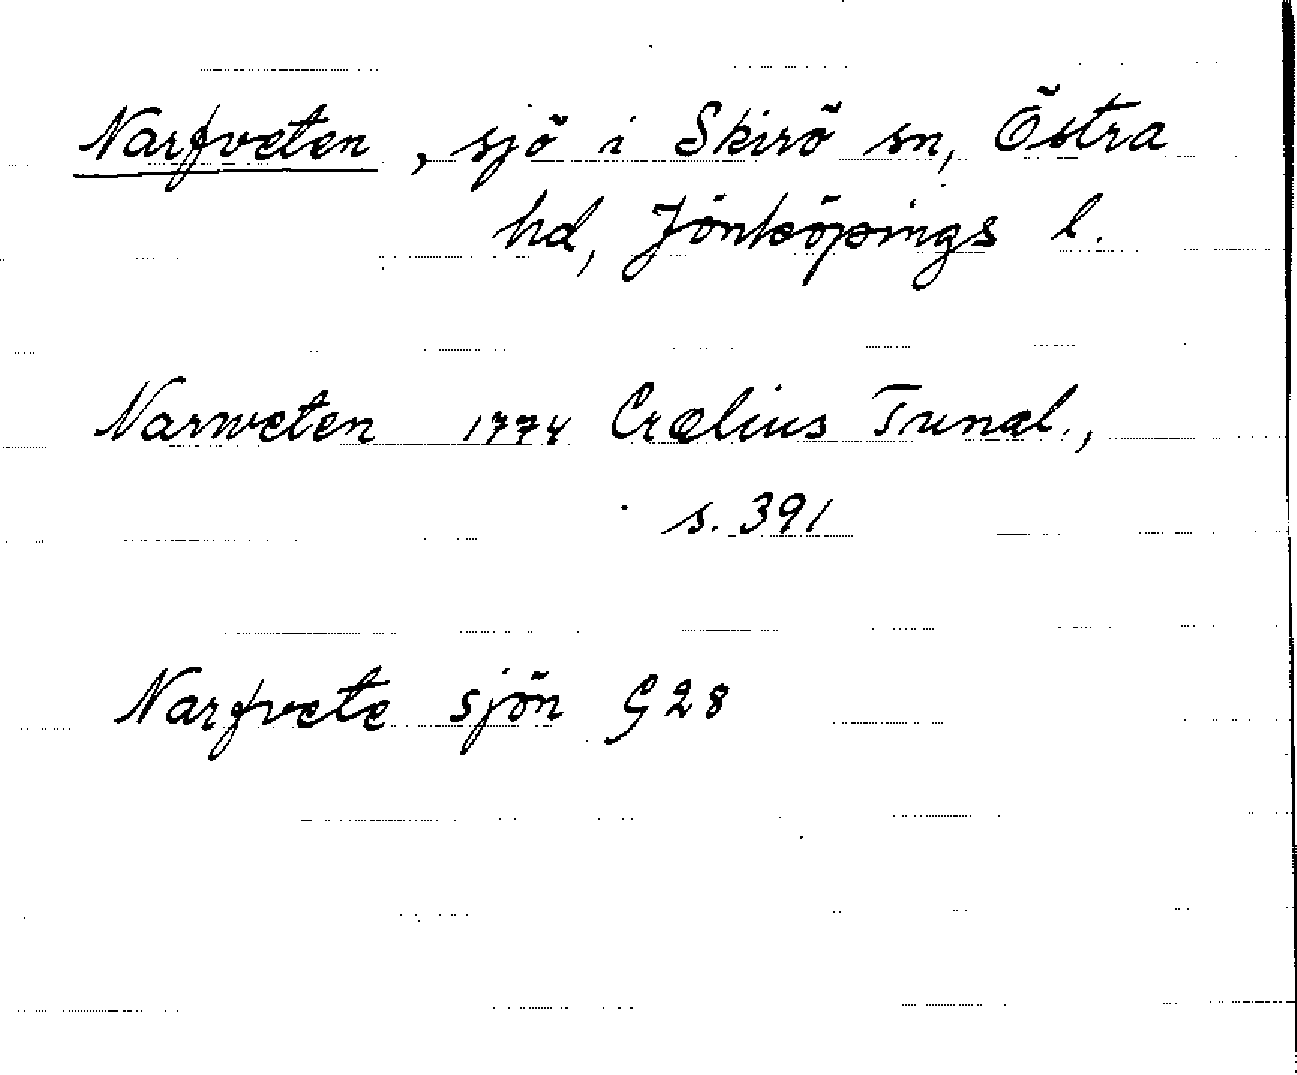 Narfveten, sjö i Skirö sn, Östra
hd, Jönköpings l.
Narweten 1774 Crælius Tunæl.,
s. 391
Narfvete sjön G28